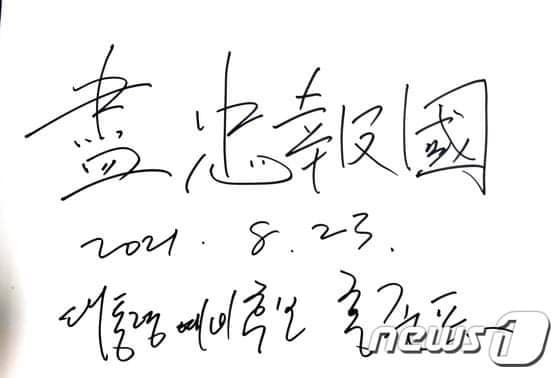 盡忠報國
2021. 8. 23.
대통령예비후보 홍준표
news1